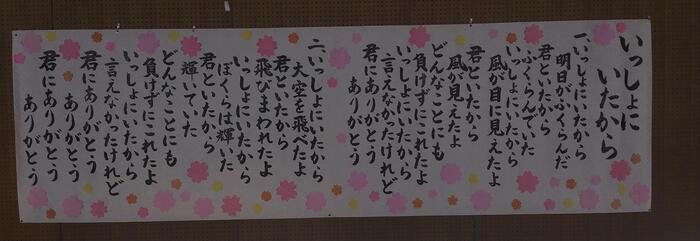 いっしょに
いたから
一、いっしょにいたから
明日がふくらんだ
君といたから
ふくらんでいた
いっしょにいたから
風が目に見えたよ
君といたから
風が見えたよ
どんなことにも
負けずにこれたよ
いっしょにいたから
言えなかったけれど
君にありがとう
ありがとう
二、いっしょにいたから
大空を飛べたよ
君といたから
飛びまわれたよ
いっしょにいたから
ぼくらは輝いた
君といたから
輝いていた
どんなことにも
負けずにこれたよ
いっしょにいたから
言えなかったけれど
君にありがとう
ありがとう
君にありがとう
ありがとう